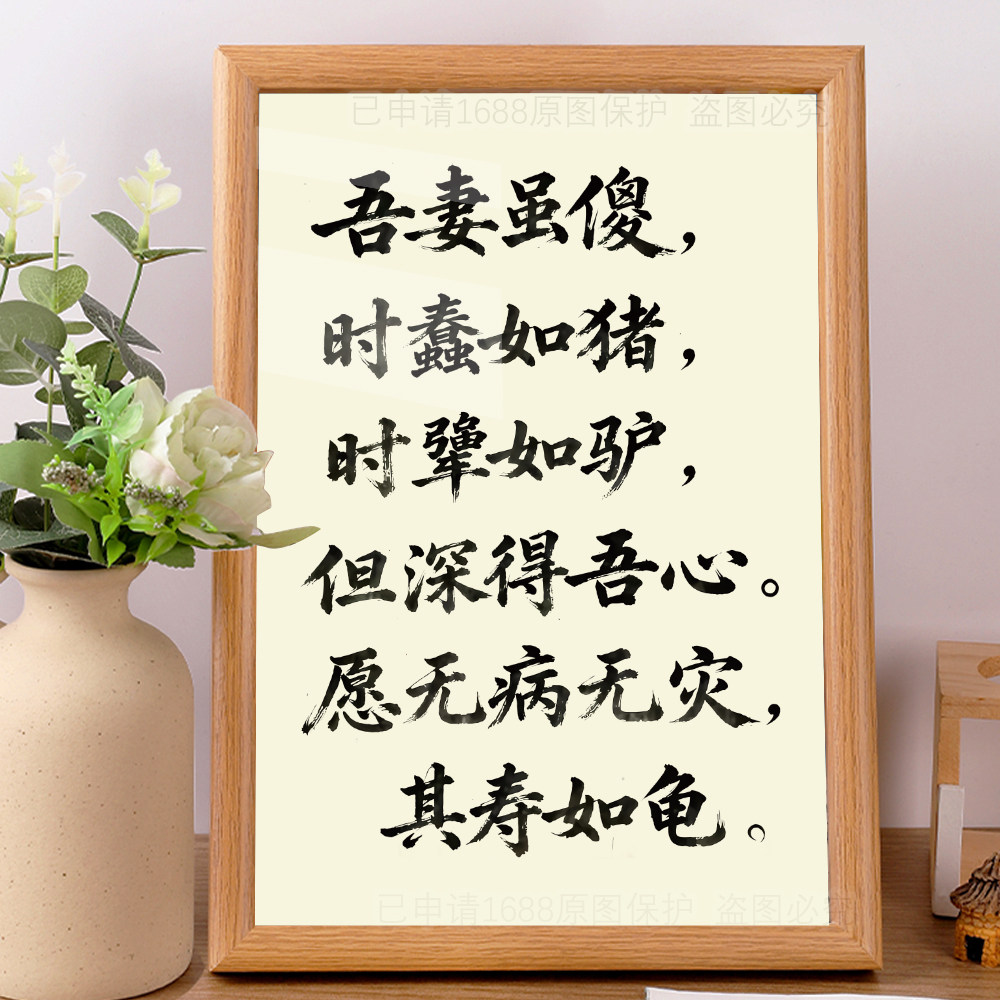 已申请1688原图保护 盗图必究
吾妻虽傻，
时蠢如猪，
时犟如驴，
但深得吾心。
愿无病无灾，
其寿如龟。
已申请1688原图保护 盗图必究